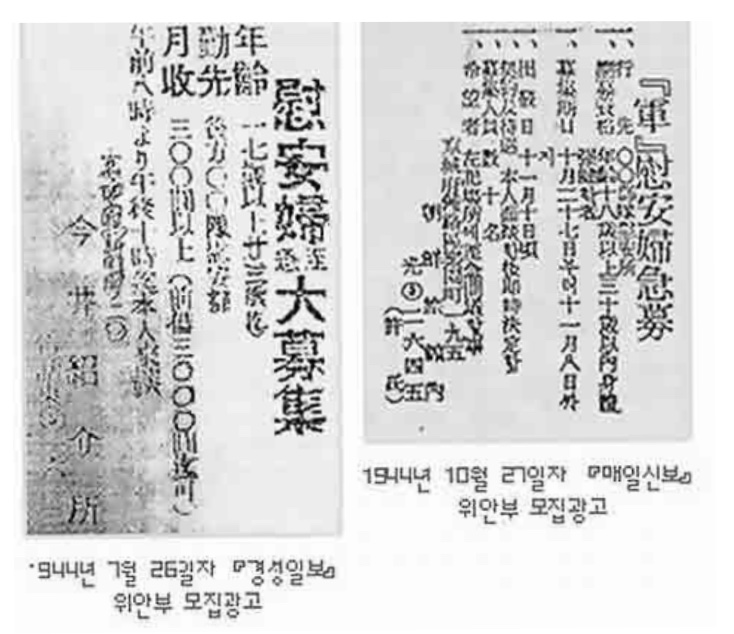 慰安婦至急大募集
年齢 一七歳以上廿三歳迄
勤先 後方〇〇隊慰安部
月收 三〇〇圓以上(前借三〇〇〇圓迄可)
午前八時より午後十時迄本人來談
今井紹介所
1944년 7월 26일자 『경성일보』
위안부 모집광고
『軍』慰安婦急募
一、行先 〇〇部隊慰安所
一、應募資格 年齡十八歲以上三十歲以內身體
强健者
一、募集期日 十月二十七日부터十一月八日까
지
一、出發日 十一月十日頃
一、契約及待遇 本人面談後卽時決定함
一、募集人員 數十名
一、希望者 左記場所에至急問議의事
京城府鍾路區樂園町一九五
朝鮮旅館內
光③二六四五
(許氏)
1944년 10월 27일자 『매일신보』
위안부 모집광고